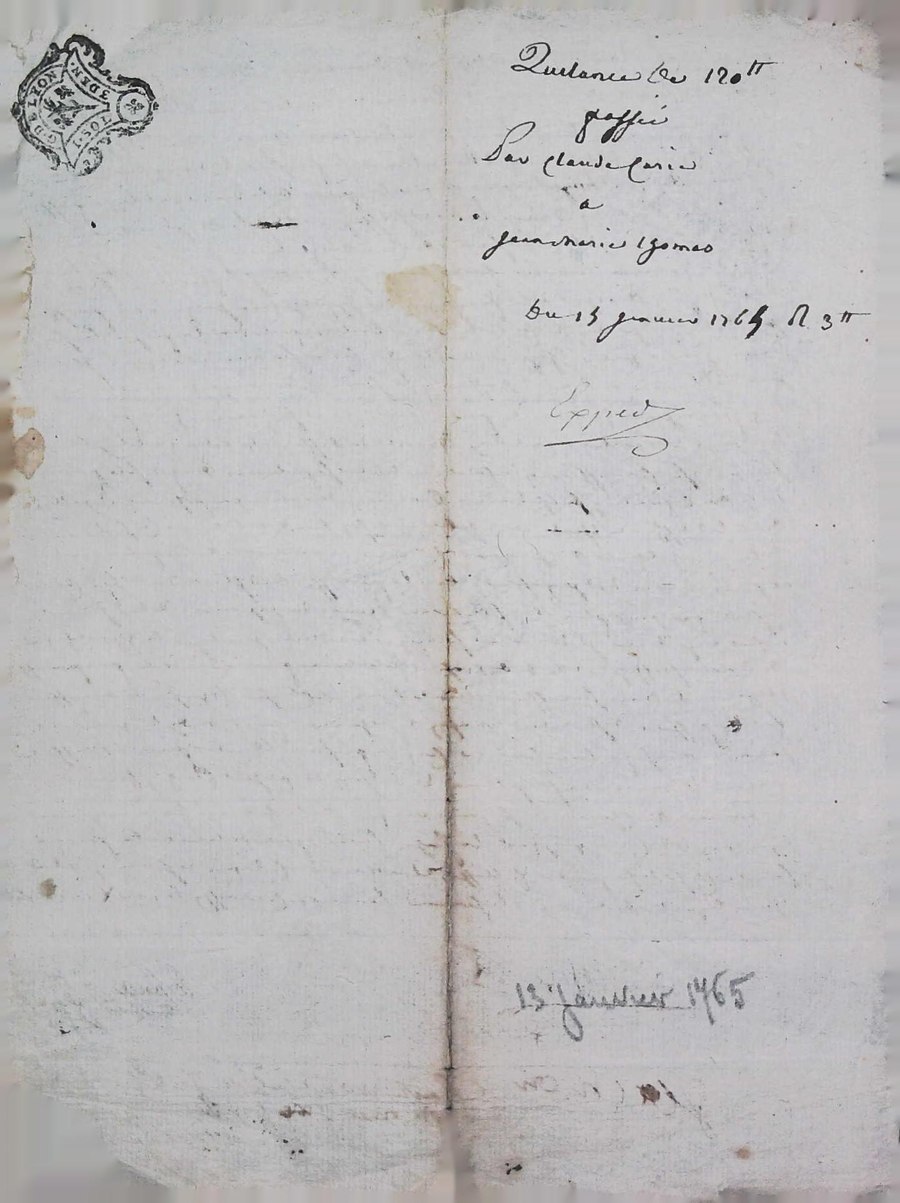 G. DE LYON
1. SOL
3 DEN.
Quittance de 120tt
passée
Par Claude
a
Jean Marie thomas
Du 13 janvier 1765 R 3tt
Exped
13 Janvier 1765